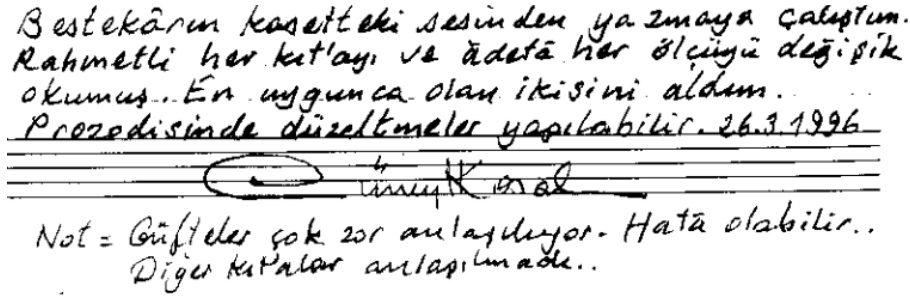 Bestekârın kasetteki sesinden yazmaya çalıştım.
Rahmetli her kıt'ayı ve âdetâ her ölçüyü değişik
okumuş.. En uygunca olan ikisini aldım.
Prozodisinde düzeltmeler yapılabilir. 26.3.1996
Cüneyt Kosal
Not = Güfteler çok zor anlaşılıyor. Hatâ olabilir..
Diğer kıt'alar anlaşılmadı..